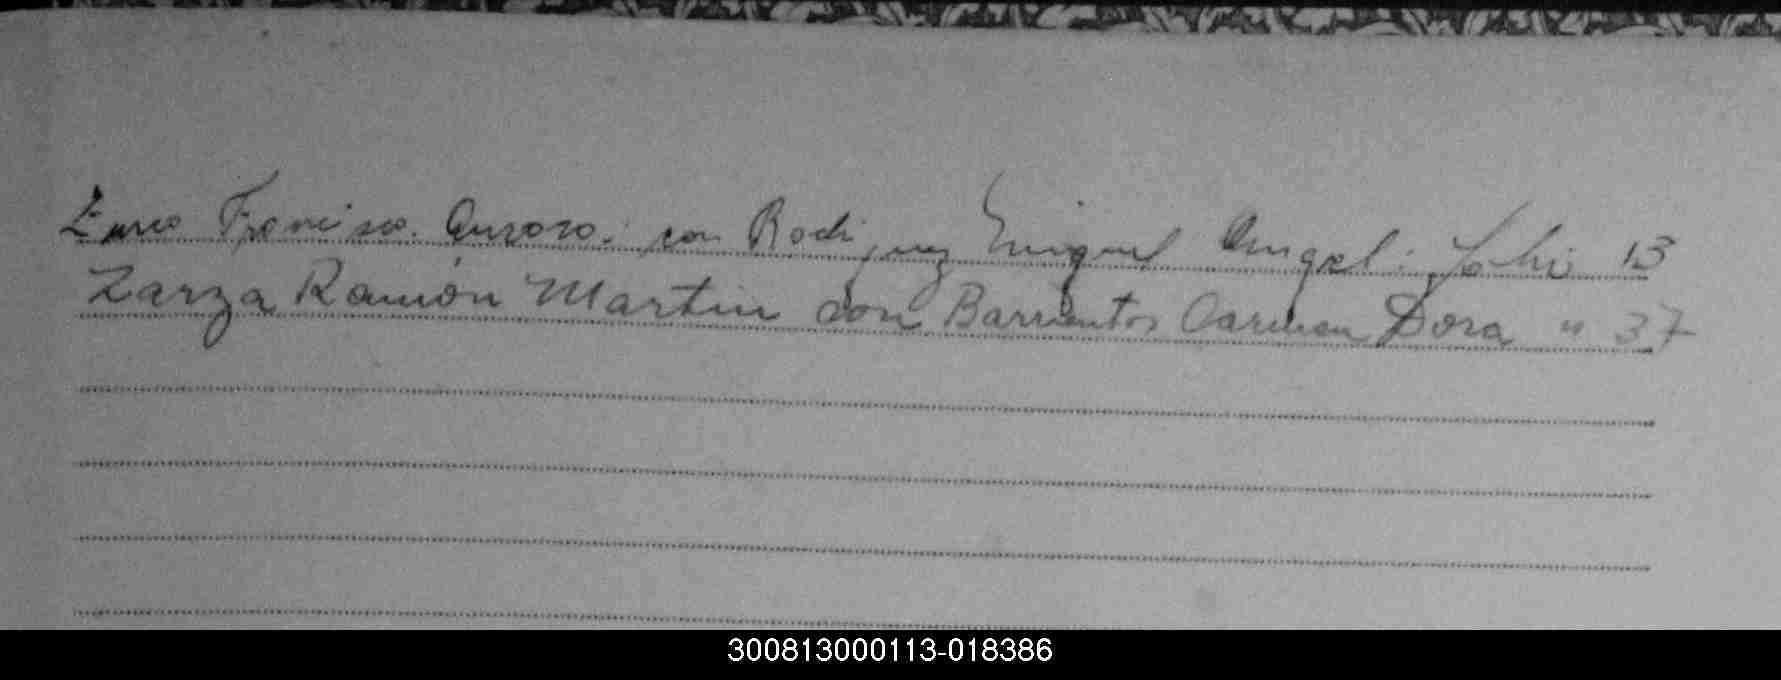 Francisco. con Rodriguez Miguel Angel. Folio 13
Zarza Ramón Martin con Barrientos Carmen Dora " 37
300813000113-018386